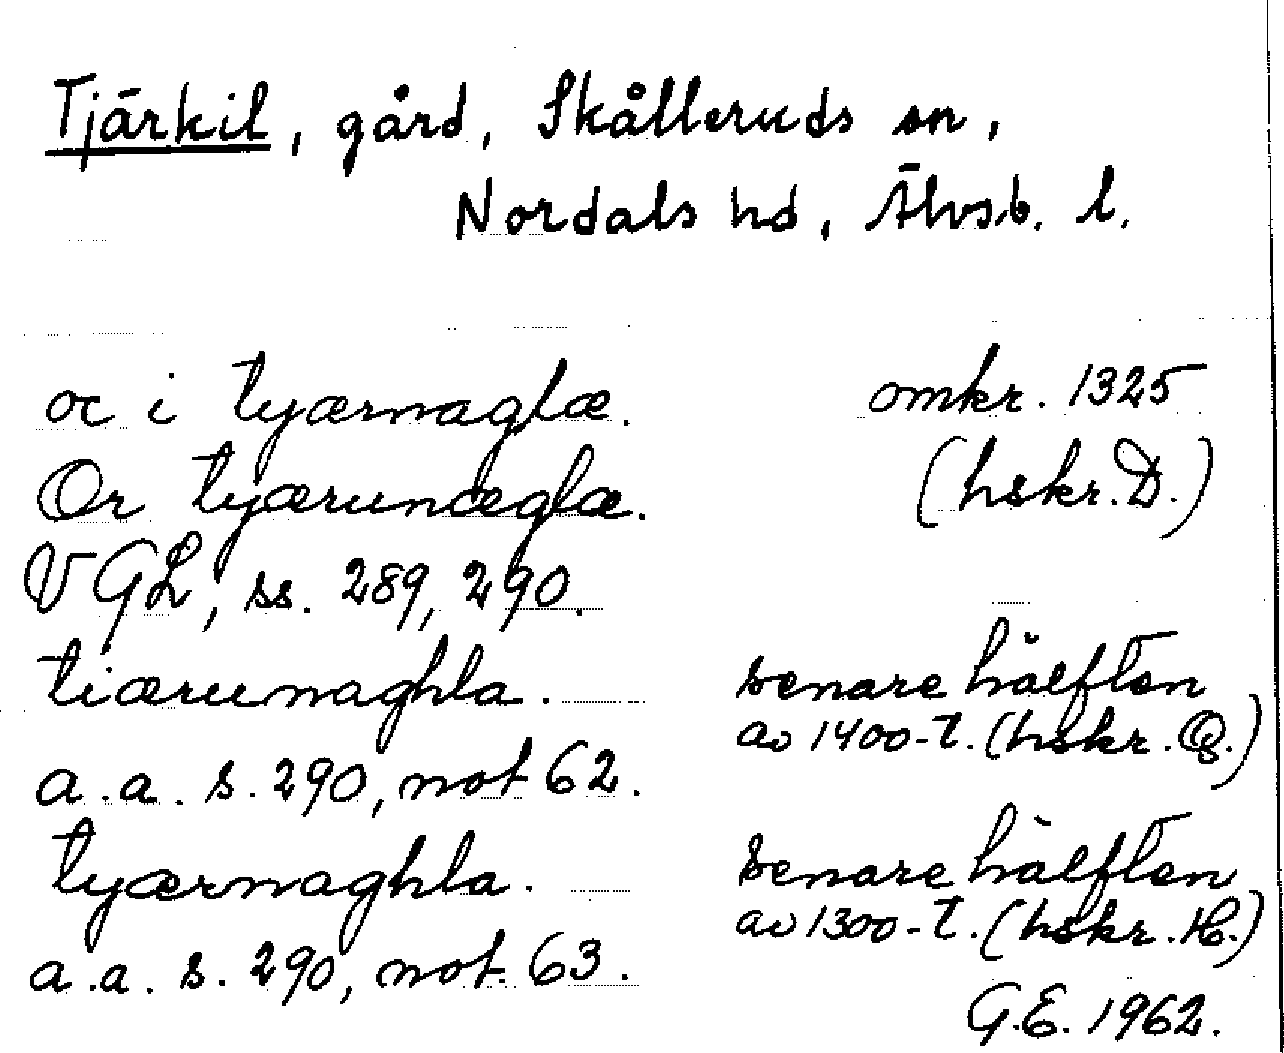 Tjärkil, gård, Skålleruds sn,
Nordals hd, Älvsb. l.
oc i tyærnaglæ. omkr. 1325
Or tyærunæglæ. (hskr. D.)
VGL, ss. 289, 290.
tiærunaghla. senare hälften
av 1400-t. (hskr. Q.)
a.a. s. 290, not 62.
tyærnaghla. senare hälften
av 1300-t. (hskr. H.)
a.a. s. 290, not 63.
G.E. 1962.